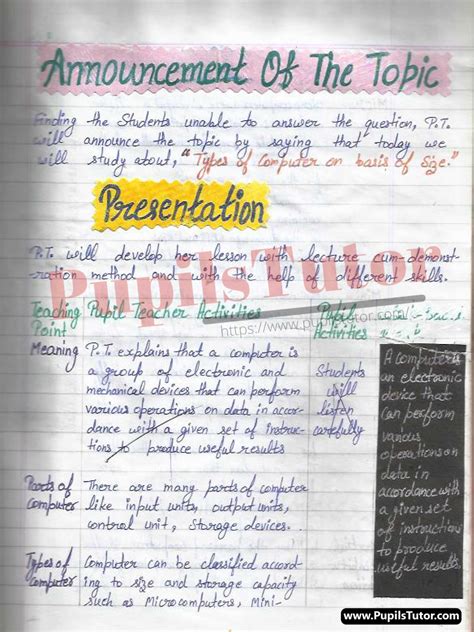 Announcement Of The Topic
Finding the Students unable to answer the question, P.T.
will announce the topic by saying that today we
will study about, "Types of Computer on basis of Size."
Presentation
P.T. will develop her lesson with lecture cum-demonst-
ration method and with the help of different skills.
PupilsTutor
https://www.pupilstutor.com/
Teaching Point
Pupil Teacher Activities
Pupil Activities
Meaning
P.T. explains that a computer is
a group of electronic and
mechanical devices that can perform
various operations on data in accor-
dance with a given set of instruc-
tions to produce useful results
Students
will
listen
carefully
A computer is
an electronic
device that
can perform
various
operations on
data in
accordance with
a given set
of instruction
to produce
useful results.
Parts of
Computer
There are many parts of computer
like input units, output units,
control unit, storage devices..
Types of
Computer
Computer can be classified accord-
ing to size and storage capacity
such as Microcomputers, Mini-
www.PupilsTutor.com